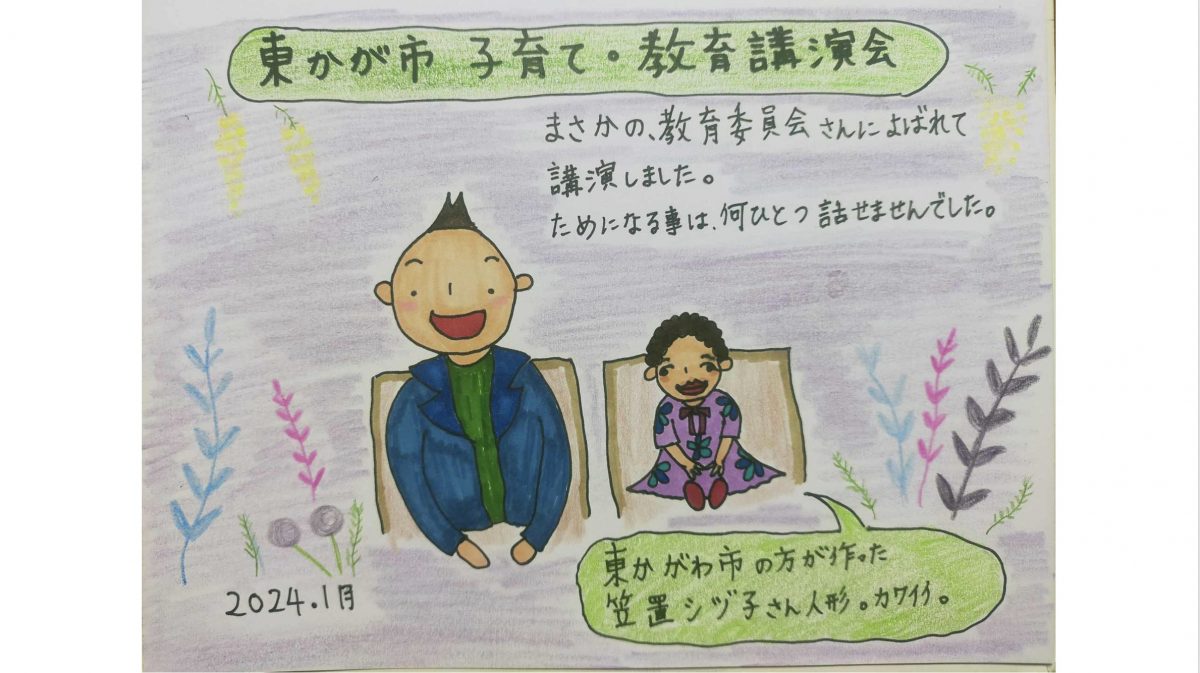 東かが市 子育て。教育講演会
まさかの、教育委員会さんによばれて
講演しました。
ためになる事は、何ひとつ話せませんでした。
東かがわ市の方が作った
笠置シヅ子さん人形。カワイイ。
2024.1月